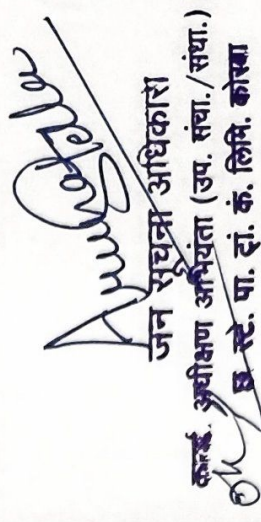 जन सूचना अधिकारी
कार्या. अधीक्षण अभियंता (उप. संचा./संधा.)
छ. स्टे. पा. ट्रां. कं. लिमि. कोरबा